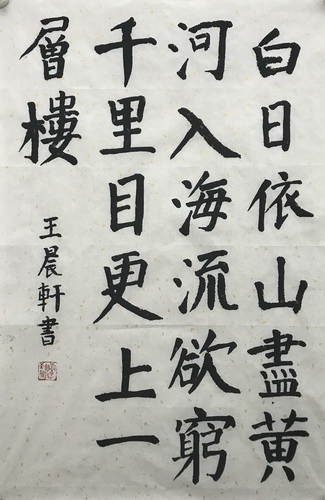 白日依山盡黃
河入海流欲窮
千里目更上一
層樓
王晨軒書